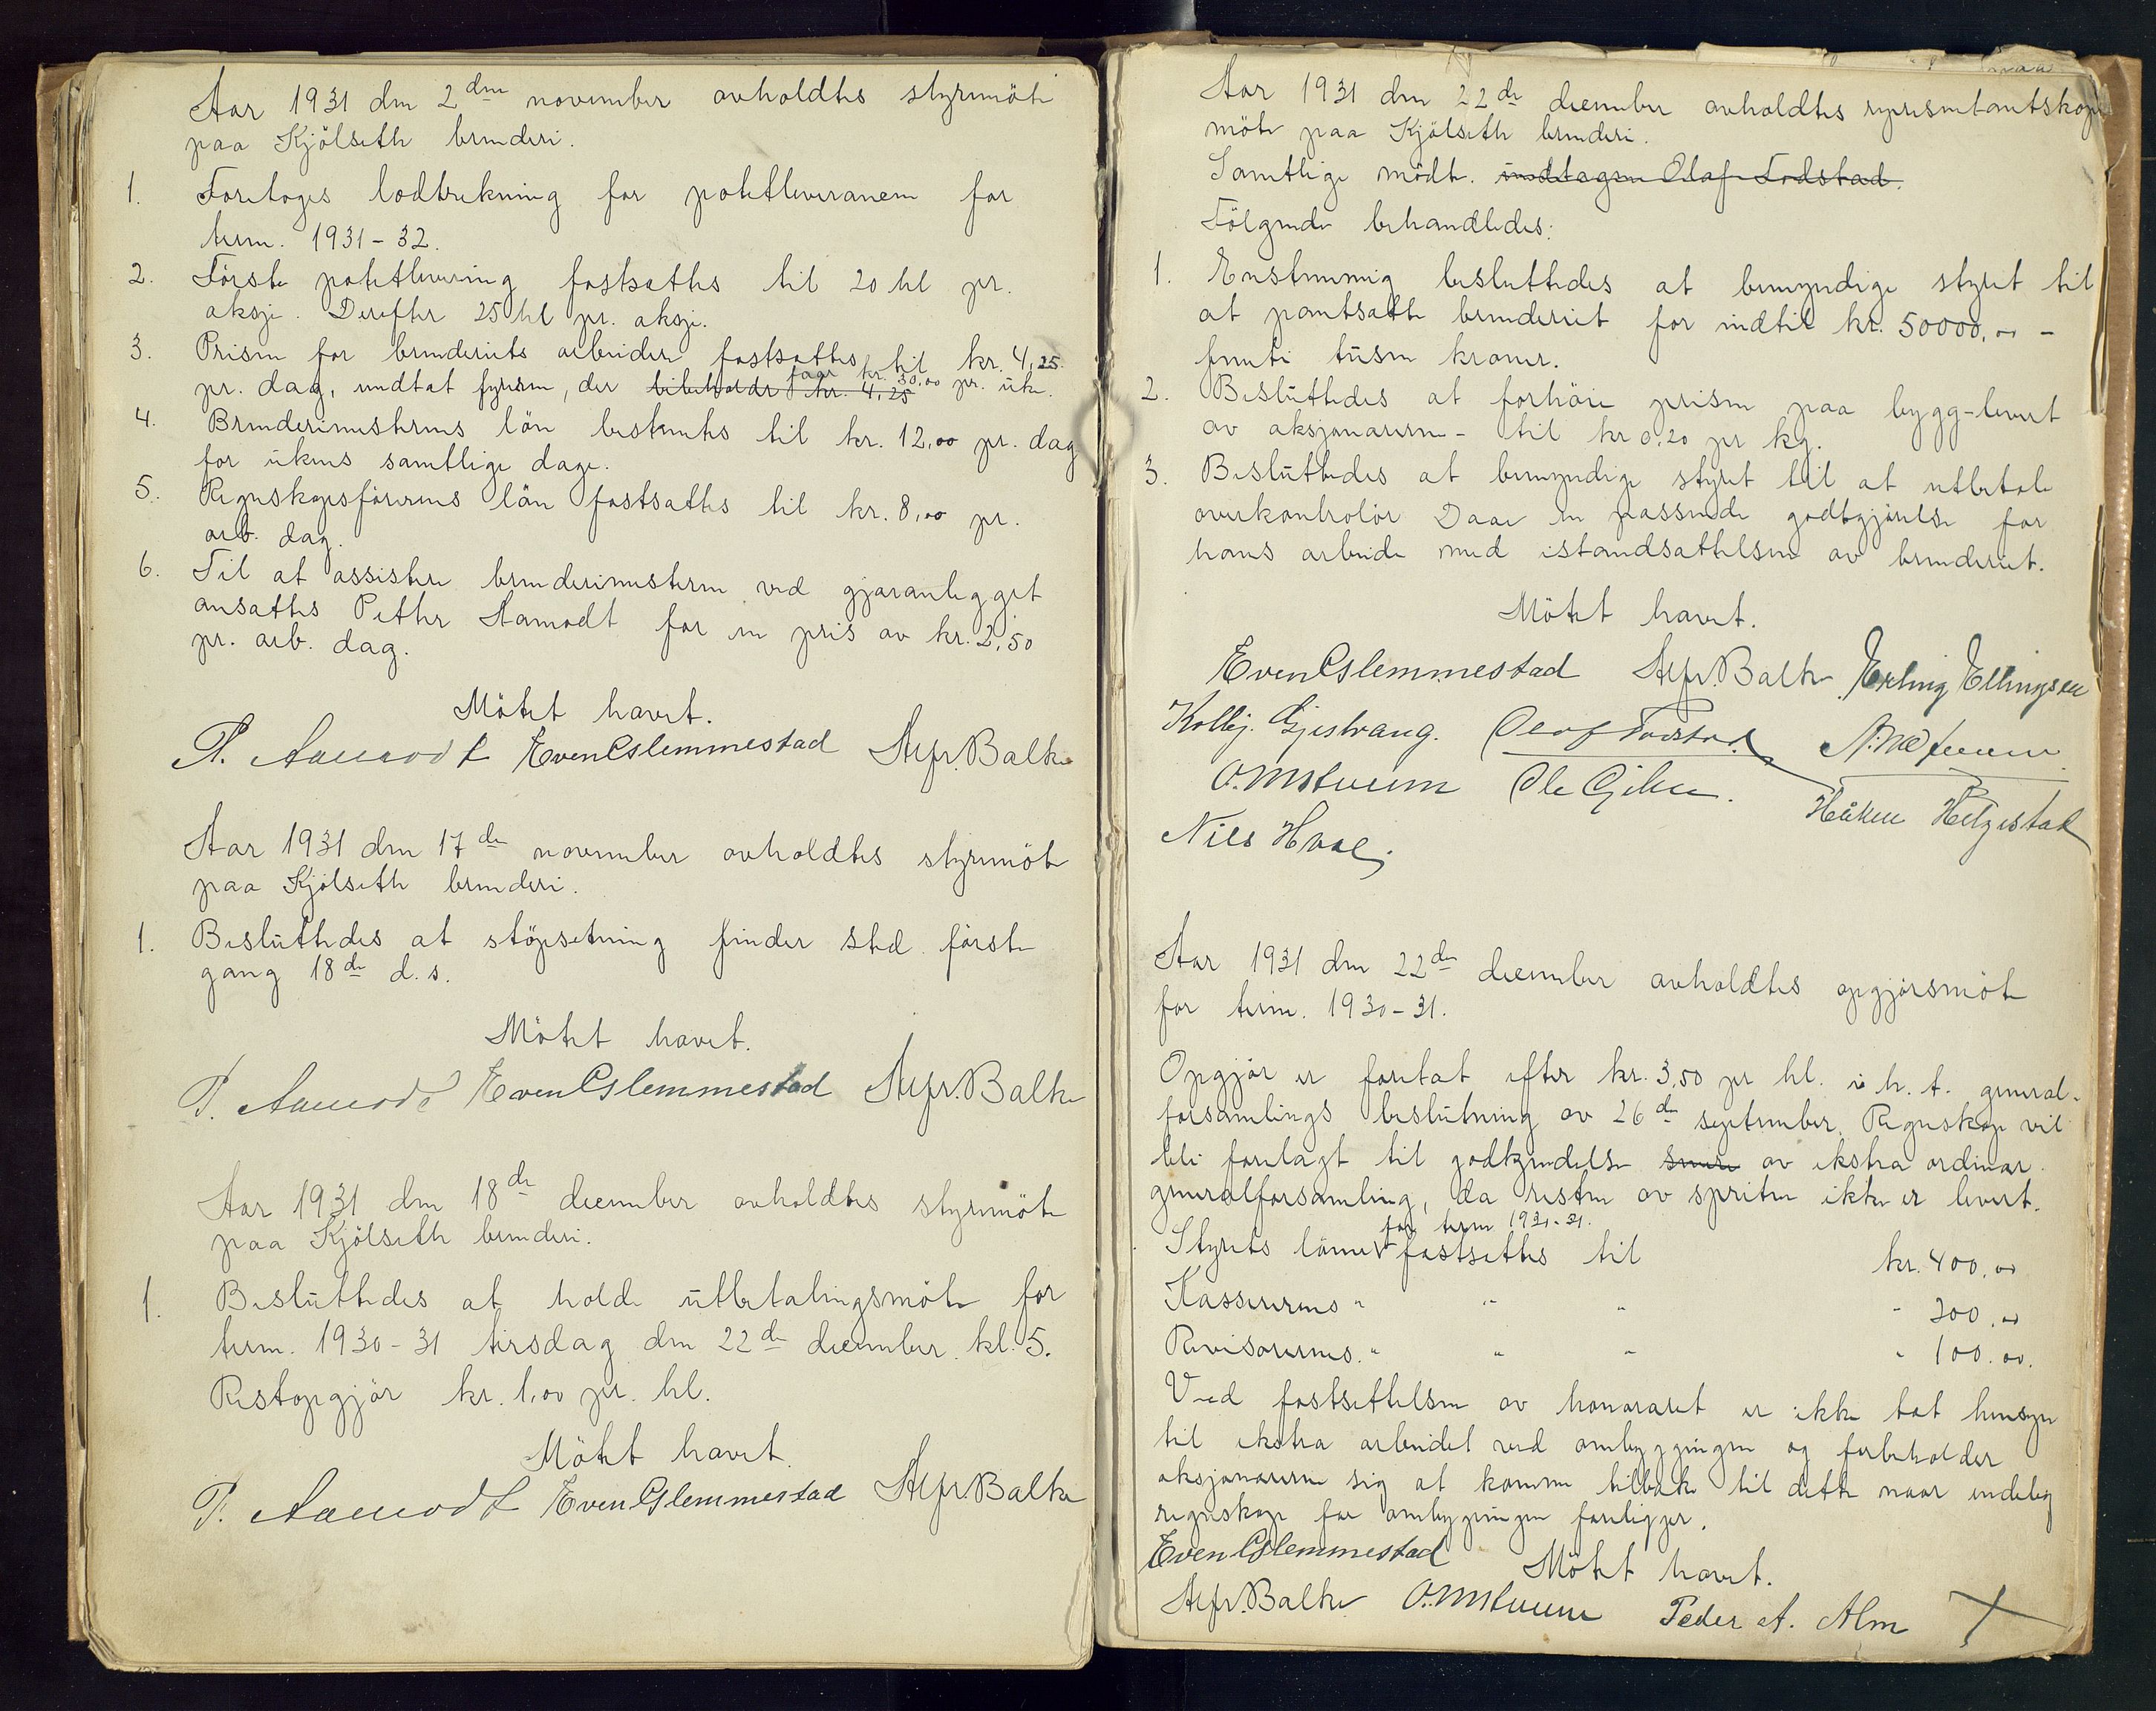 Aar 1931 den 2den november avholdtes styremöte
paa Kjölseth brenderi.
1. Foretoges lodtrekning for potetleveransen for
term. 1931-32.
2. Förste potetlevering fastsattes til 20 hl pr.
aksje. Derefter 25 hl pr. aksje.
3. Prisen for brenderiets arbeidere fastsattes til kr. 4,25
pr. dag, undtat fyrsen, der bibeholder kr. 4,25 faar kr. 30,00 pr. uke.
4. Brenderimesterens lön bestemtes til kr. 12,00 pr. dag
for ukens samtlige dage.
5. Regnskapsförerens lön fastsattes til kr. 8,00 pr.
arb. dag.
6. Til at assistere brenderimesteren ved gjæranlegget
ansattes Petter Aamodt for en pris av kr. 2,50
pr. arb. dag.
Mötet hævet.
P. Aamodt Even Gslemmestad Alfr. Balke
Aar 1931 den 17de november avholdtes styremöte
paa Kjölseth brenderi.
1. Besluttedes at stöpsetning finder sted förste
gang 18de d.s.
Mötet hævet.
P. Aamodt Even Gslemmestad Alfr. Balke
Aar 1931 den 18de december avholdtes styremöte
paa Kjölseth brenderi.
1. Besluttedes at holde utbetalingsmöte for
term. 1930-31 tirsdag den 22de december kl. 5.
Restopgjör kr. 1,00 pr. hl.
Mötet hævet.
P. Aamodt Even Glemmestad Alfr. Balke
Aar 1931 den 22de december avholdtes representantskaps
möte paa Kjölseth brenderi.
Samtlige mödte. undtagen Olaf Fodstad.
Fölgende behandledes:
1. Enstemmig besluttedes at bemyndige styret til
at pantsætte brenderiet for indtil kr. 50000,00 -
femti tusen kroner.
2. Besluttedes at forhöie prisen paa bygg-levert
av aksjonærerne - til kr 0,20 pr kg.
3. Besluttedes at bemyndige styret til at utbetale
overkontrolör Daae en passende godtgjörelse for
hans arbeide med istandsættelsen av brenderiet.
Mötet hævet.
Even Gslemmestad Alfr. Balke Erling Ellingsen
Kolbj. Gjestvang. Olaf Fodstad
Ole Gihle.
Håken Helgestad
Nils Hoel
Aar 1931 den 22de december avholdtes opgjörsmöte
for term. 1930-31.
Opgjör er foretat efter kr. 3,50 pr hl. i h. t. general-
forsamlings beslutning av 26de september. Regnskap vil
bli forelagt til godkjendelse senere av ekstra ordinær
generalforsamling, da resten av spriten ikke er levert.
Styrets lönner for term 1931-31. fastsettes til kr. 400,00
Kassererens " " " " 200,00
Revisorernes. " " " " 100.00.
Ved fastsettelsen av honoraret er ikke tat hensyn
til ekstra arbeidet ved ombyggingen og forbeholder
aksjonærerne sig at komme tilbake til dette naar endelig
regnskap for ombyggingen foreligger.
Even Gslemmestad Mötet hævet.
Alfr. Balke Peder A. Alm